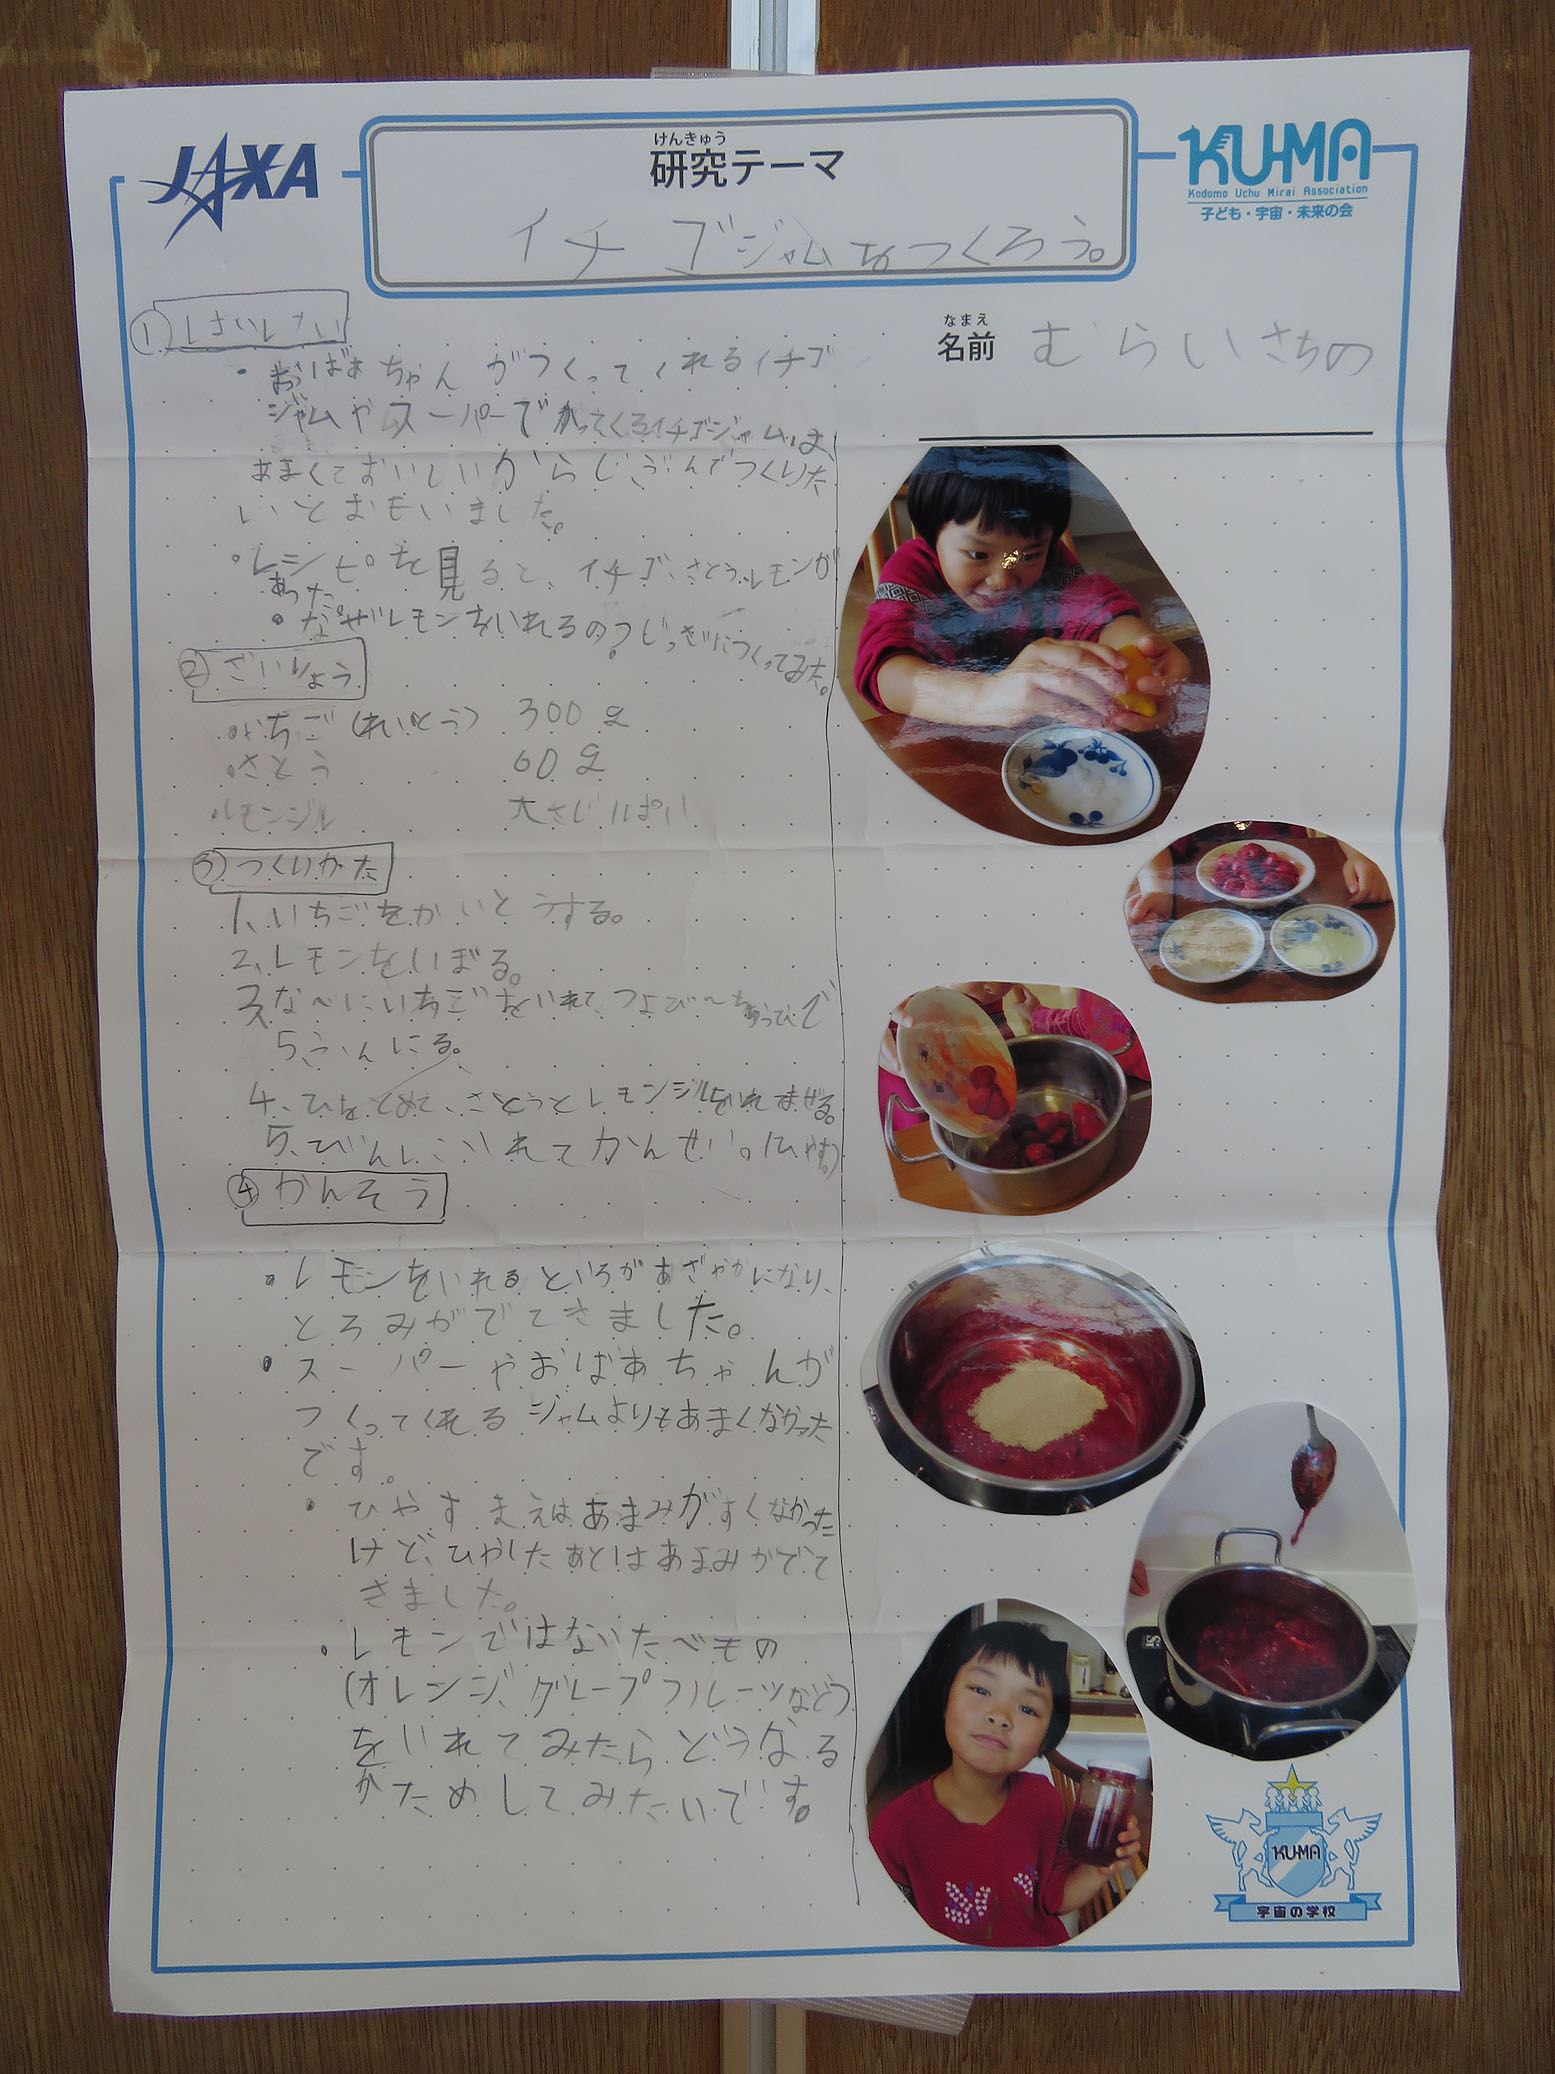 JAXA
けんきゅう
研究テーマ
イチゴジャムをつくろう。
KU-MA
Kodomo Uchu Mirai Association
子ども・宇宙・未来の会
なまえ
名前 むらいさちの
①
・おばあちゃんがつくってくれるイチゴ
ジャムやスーパーでかってくるイチゴジャムは、
あまくておいしいからじぶんでつくりた
いとおもいました。
・レシピを見ると、イチゴ、さとう、レモンが
あった
・なぜレモンをいれるの?じっさいにつくってみた。
②ざいりょう
・いちご(れいとう) 300g
・さとう 60g
・レモンジル 大さじ1ぱい
③つくりかた
1、いちごをかいとうする。
2、レモンをしぼる。
3、なべにいちごをいれて、つよび〜ちゅうびで
5ふんにる。
4、ひをとめて、さとうとレモンジルをいれまぜる。
5、びんにいれてかんせい。(ひやす)
④かんそう
・レモンをいれるといろがあざやかになり、
とろみがでてきました。
・スーパーやおばあちゃんが
つくってくれるジャムよりもあまくなかった
です。
・ひやすまえはあまみがすくなかった
けど、ひやしたあとはあまみがでて
きました。
・レモンではないたべもの
(オレンジ、グレープフルーツなど)
をいれてみたらどうなる
かためしてみたいです。
KU-MA
宇宙の学校